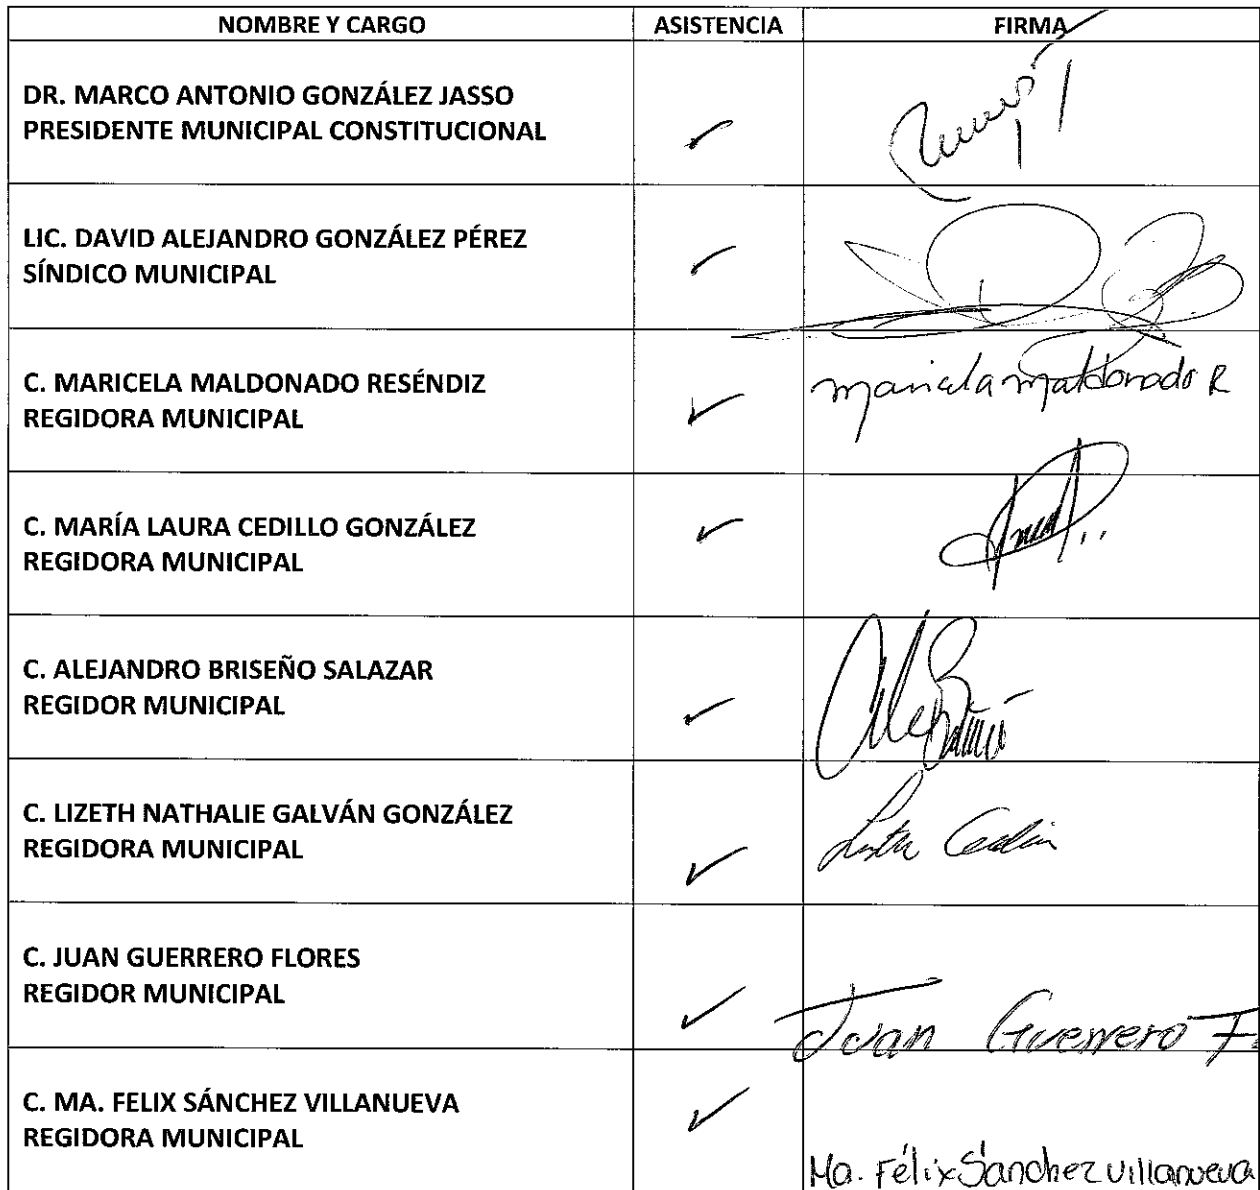 NOMBRE Y CARGO ASISTENCIA FIRMA
DR. MARCO ANTONIO GONZÁLEZ JASSO
PRESIDENTE MUNICIPAL CONSTITUCIONAL
LIC. DAVID ALEJANDRO GONZÁLEZ PÉREZ
SÍNDICO MUNICIPAL
C. MARICELA MALDONADO RESÉNDIZ
REGIDORA MUNICIPAL
maricela maldonado R
C. MARÍA LAURA CEDILLO GONZÁLEZ
REGIDORA MUNICIPAL
C. ALEJANDRO BRISEÑO SALAZAR
REGIDOR MUNICIPAL
C. LIZETH NATHALIE GALVÁN GONZÁLEZ
REGIDORA MUNICIPAL
C. JUAN GUERRERO FLORES
REGIDOR MUNICIPAL
Juan Guerrero F.
C. MA. FELIX SÁNCHEZ VILLANUEVA
REGIDORA MUNICIPAL
Ma. Félix Sánchez Villanueva